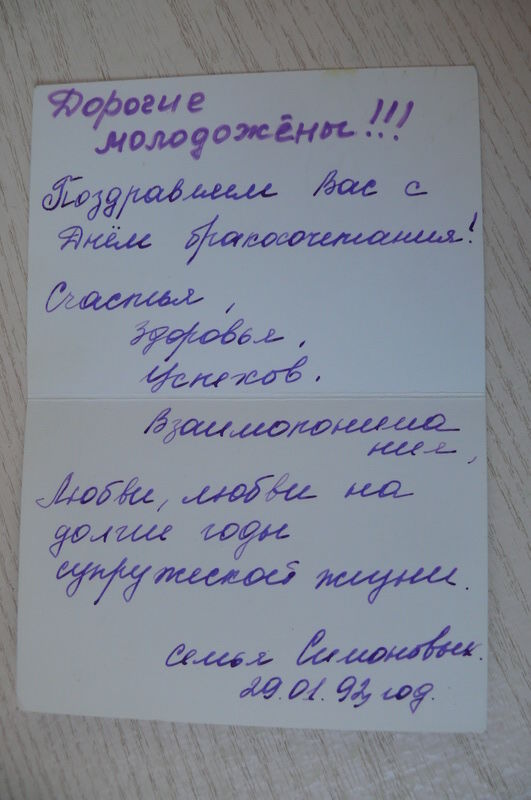 Дорогие
молодожёны!!!
Поздравляем Вас с
Днём бракосочетания!
Счастья,
Здоровья,
Успехов.
Взаимопонима
ния,
Любви, любви на
долгие годы
супружеской жизни.
семья Симоновых.
29.01.92 год.